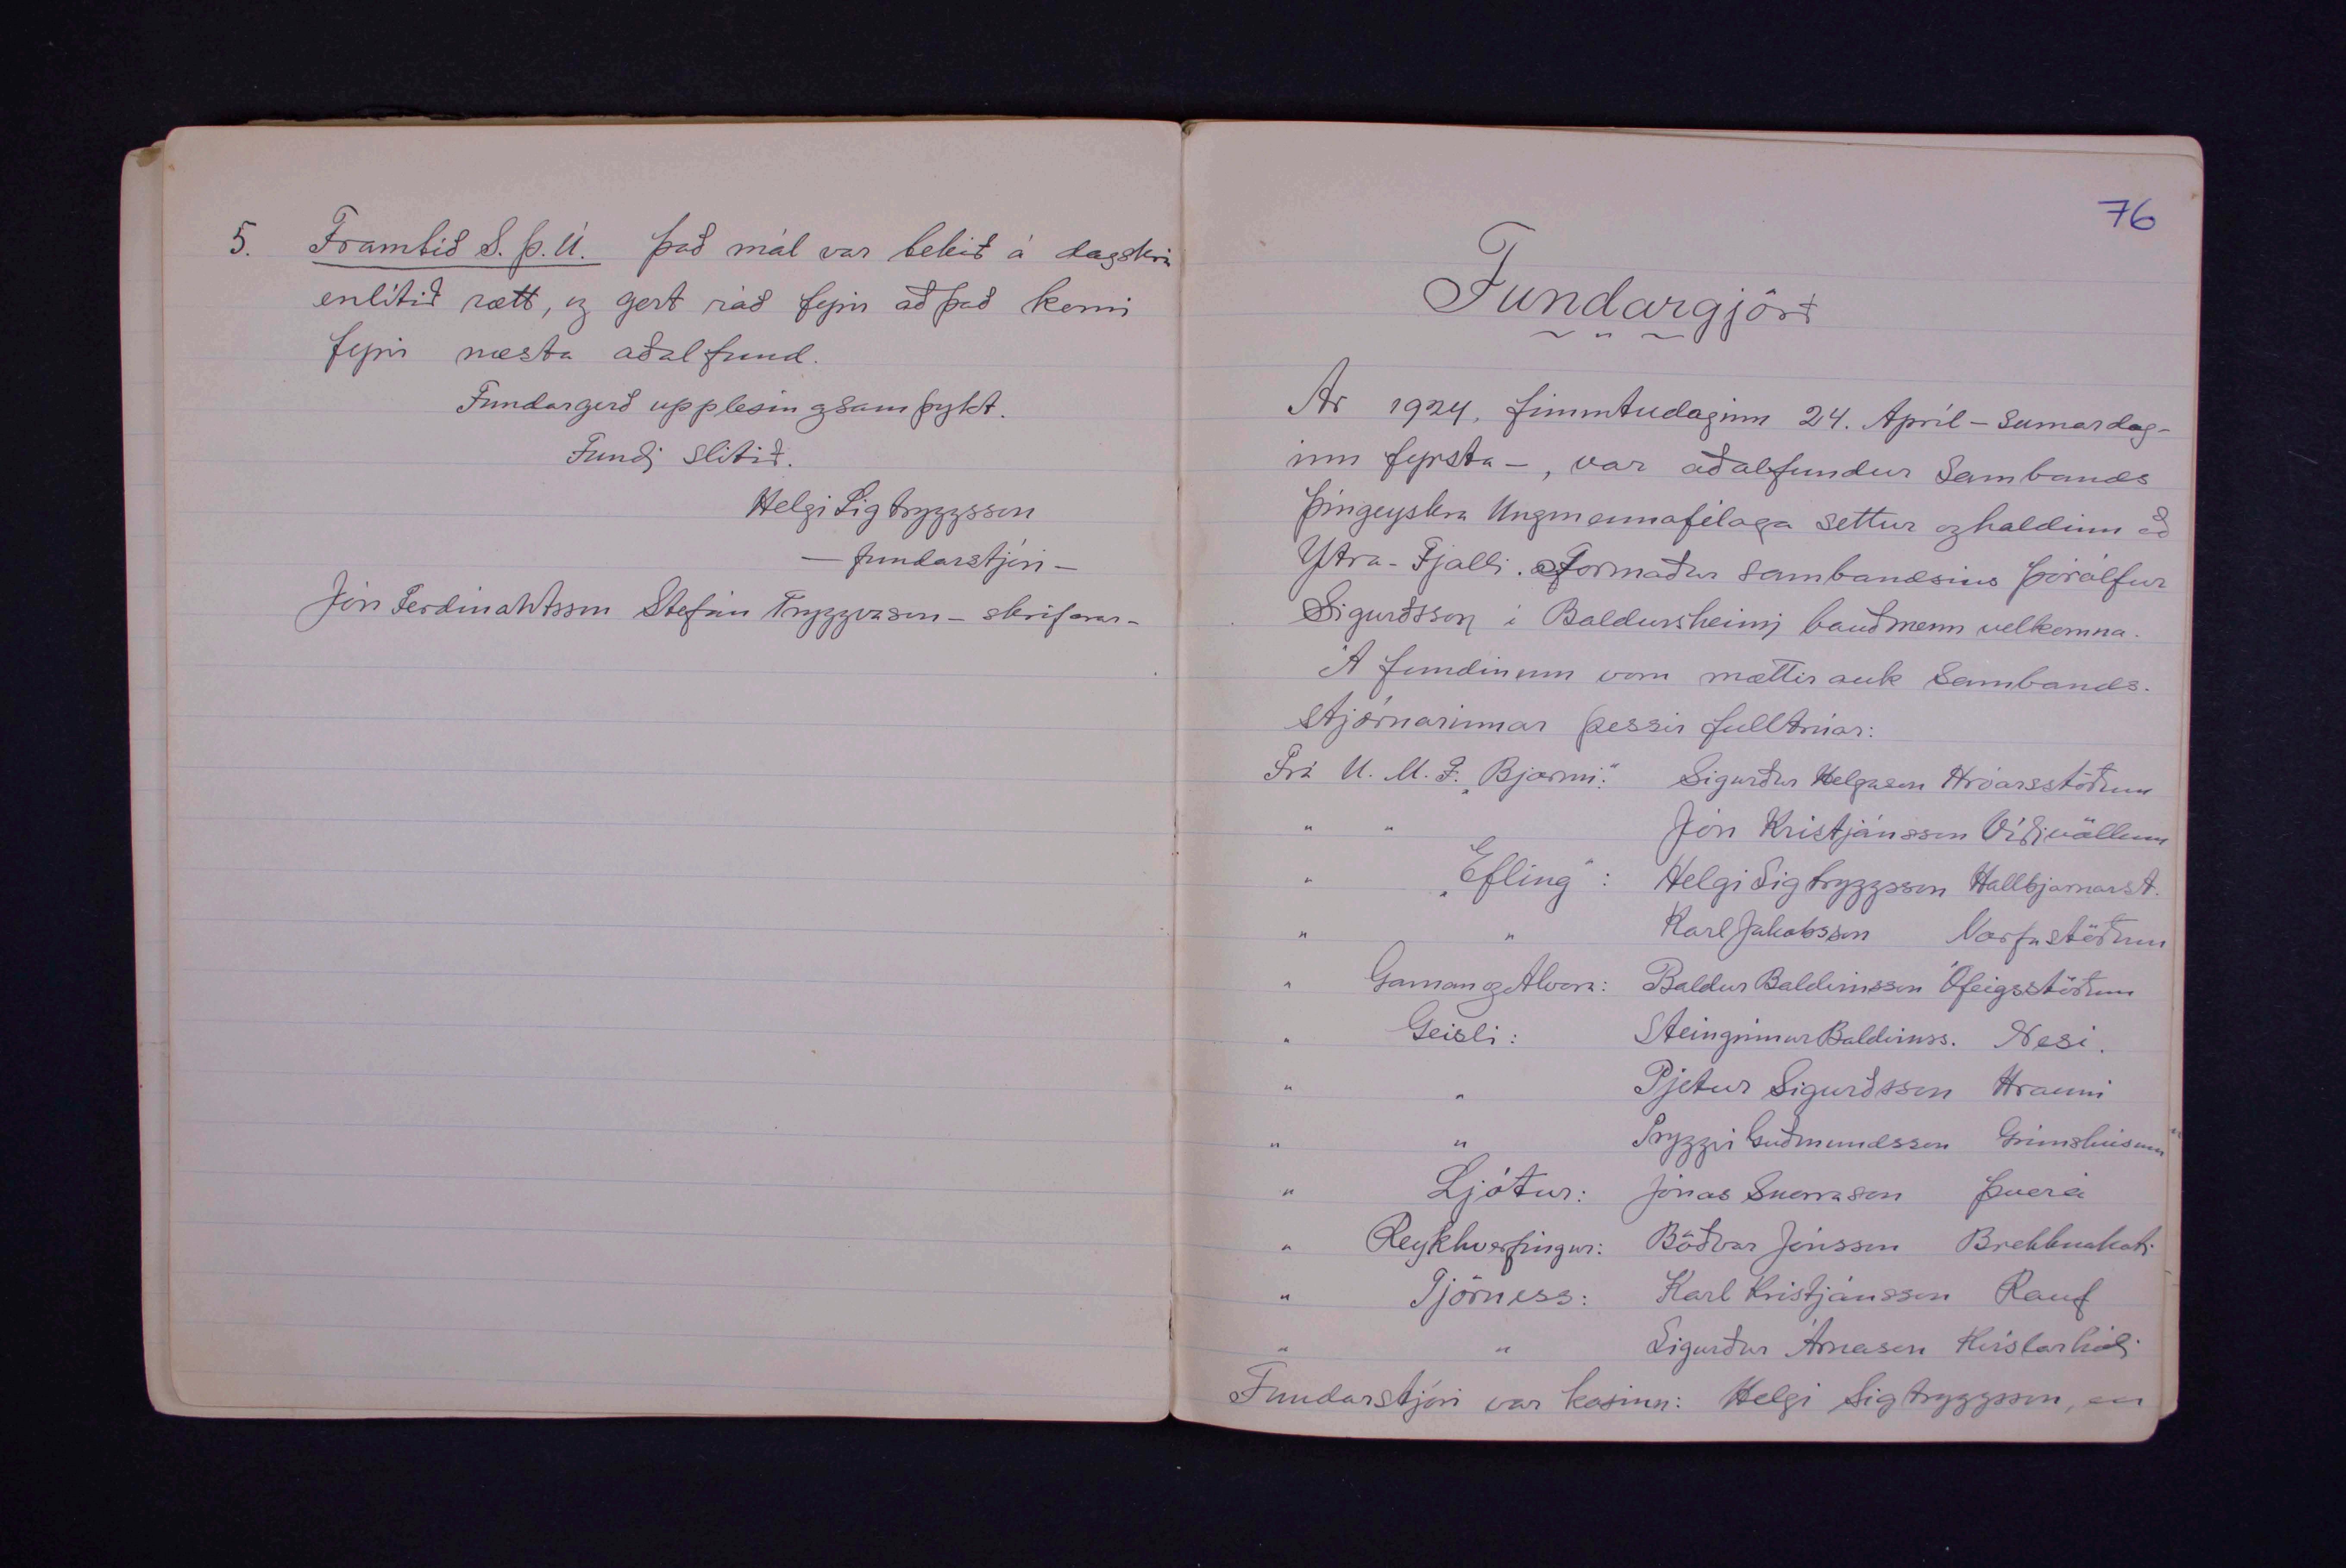 5. Framtið S. Þ. U. Það mál var tekið á dagskrá
en lítið rætt, og gert ráð fyrir að það komi
fyrir næsta aðalfund.
Fundargerð upplesin og samþykt.
Fundi slitið.
Helgi Sigtryggsson
— fundarstjóri —
Jón Ferdinantsson Stefán Tryggvason – skrifarar –
76
Fundargjörð
Ár 1924, fimmtudaginn 24. Apríl – sumardag-
inn fyrsta –, var aðalfundur Sambands
Þingeyskra Ungmennafélaga settur og haldinn að
Ytra-Fjalli. Formaður sambandsins Þórólfur
Sigurðsson í Baldursheimi bauð menn velkomna.
Á fundinum voru mættir auk Sambands-
stjórnarinnar þessir fulltrúar:
Frá U. M. F. „Bjarmi": Sigurður Helgason Hróarsstöðum
" " Jón Kristjánsson Víðivöllum
" „Efling": Helgi Sigtryggsson Hallbjarnarst.
" " Karl Jakobsson Narfastöðum
" Gaman og Alvara: Baldur Baldvinsson Ófeigsstöðum
" Geisli: Steingrímur Baldvinss. Nesi.
" " Pjetur Sigurðsson Hrauni
" " Tryggvi Guðmundsson Grímshúsum
" Ljótur: Jónas Snorrason Þverá
" Reykhverfingur: Böðvar Jónsson Brekknakoti
" Tjörness: Karl Kristjánsson Rauf
" " Sigurður Árnason Héðinshöfða
Fundarstjóri var kosinn: Helgi Sigtryggsson, en